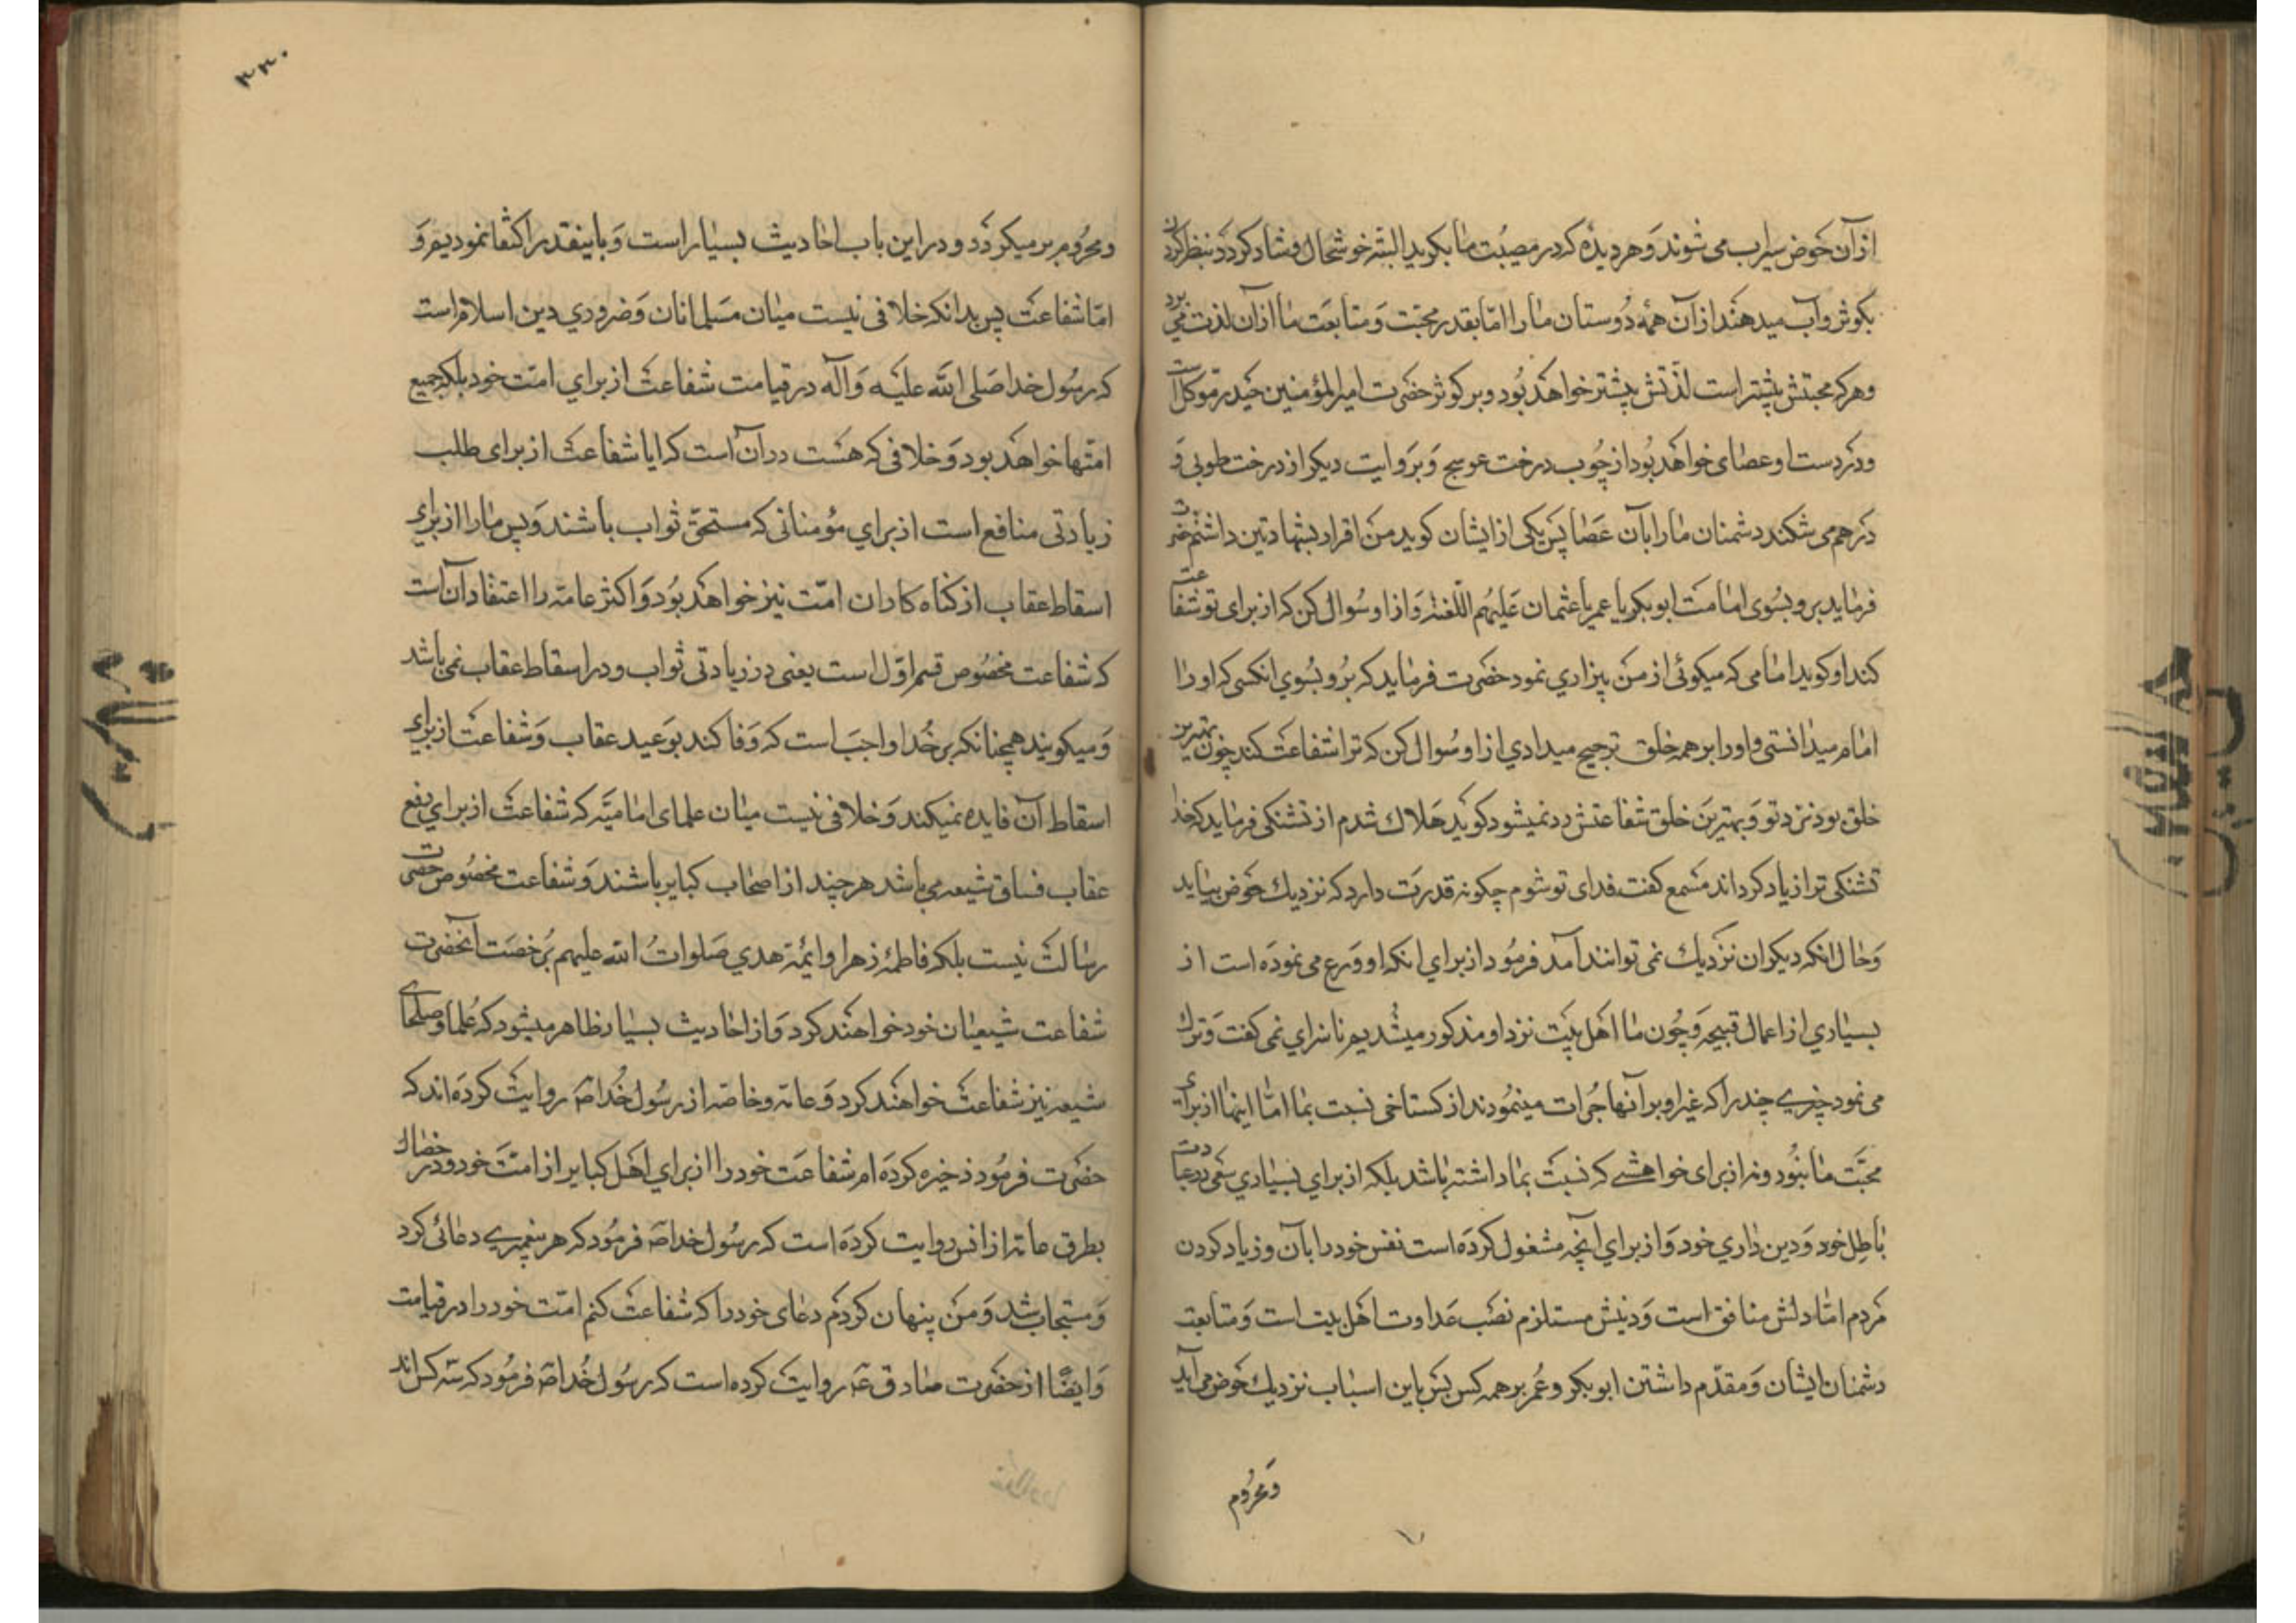 ازآن حوض سیراب می شوند و هر دیده که در مصیبت ما بگرید البته خوشحال و شاد گردد بنظر کردن
بکوثر و آب میدهند ازآن همهٔ دوستان ما را امّا بقدر محبّت و متابعت ما ازآن لذت می برد
و هرکه محبتش بیشتر است لذّتش بیشتر خواهد بود و بر کوثر حضرت امیرالمؤمنین حیدر موکل است
و در دست او عصای خواهد بود از چوب درخت عوسج و بروایت دیکر از درخت طوبی و
درهم می شکند دشمنان ما را بآن عصا پس یکی از ایشان کوید من اقرار بشهادتین داشتم حضرت
فرماید برو بسوی امامت ابوبکر یا عمر یا عثمان علیهم اللّعنه و ازاو سوال کن که از برای تو شفاعت
کند او کوید امامی که میکوئی از من بیزاری نمود حضرت فرماید که برو بسوی انکسی که او را
امام میدانستی و اورا بر همه خلق ترجیح میدادی ازاو سوال کن که ترا شفاعت کند چون بهترین
خلق بود نزد تو و بهترین خلق شفاعتش رد نمیشود کوید هلاک شدم از تشنکی فرماید که خدا
تشنکی ترا زیاد کرداند مسمع کفت فدای تو شوم چکونه قدرت دارد که نزدیک حوض بیاید
و حال انکه دیکران نزدیک نمی توانند آمد فرمود از برای انکه او ورع می نموده است از
بسیاری از اعمال قبیحه و چون ما اهل بیت نزد او مذکور میشدیم ناسزای نمی کفت و ترک
می نمود چیزی چند را که غیر او بر آنها جرات مینمودند از کستاخی نسبت بما امّا اینها از برای
محبّت ما نبود و نه از برای خواهشی که نسبت بما داشته باشد بلکه از برای بسیاری سعی در عبادت
باطل خود و دین داری خود و از برای آنچه مشغول کرده است نفس خود را بآن و زیاد کردن
مردم امّا دلش منافق است و دینش مستلزم نصب عداوت اهل بیت است و متابعت
دشمنان ایشان و مقدّم داشتن ابوبکر و عمر بر همه کس پس باین اسباب نزدیک حوض می آید
و محروم
۳۳۰
و محروم بر میکردد و در این باب احادیث بسیار است و باینقدر اکتفا نمودیم و
امّا شفاعت پس بدانکه خلافی نیست میان مسلمانان و ضروری دین اسلام است
که رسول خدا صلی الله علیه و آله در قیامت شفاعت از برای امّت خود بلکه جمیع
امتها خواهد بود و خلافی که هست در آن است که ایا شفاعت از برای طلب
زیادتی منافع است از برای مؤمنانی که مستحقّ ثواب باشند و پس ما را از برای
اسقاط عقاب از کناه کاران امّت نیز خواهد بود و اکثر عامه را اعتقاد آن است
که شفاعت مخصوص قسم اوّل است یعنی در زیادتی ثواب و در اسقاط عقاب نمی باشد
و میکویند همچنانکه بر خدا واجب است که وفا کند بوعید عقاب و شفاعت از برای
اسقاط آن فایده نمیکند و خلافی نیست میان علمای امامیّه که شفاعت از برای دفع
عقاب فساق شیعه می باشد هرچند از اصحاب کبایر باشند و شفاعت مخصوص حضرت
رسالت نیست بلکه فاطمهٔ زهرا و ائمّه هدی صلوات الله علیهم برخصت آنحضرت
شفاعت شیعیان خود خواهند کرد و از احادیث بسیار ظاهر میشود که علما و صلحای
شیعه نیز شفاعت خواهند کرد و عامه و خاصه از رسول خدا ص روایت کرده اند که
حضرت فرمود ذخیره کرده ام شفاعت خود را از برای اهل کبایر از امّت خود و در خصال
بطرق عامه از انس روایت کرده است که رسول خدا ص فرمود که هر پیغمبری دعائی کرد
و مستجاب شد و من پنهان کردم دعای خود را که شفاعت کنم امّت خود را در قیامت
و ایضًا از حضرت صادق ع روایت کرده است که رسول خدا ص فرمود که سه کس اند